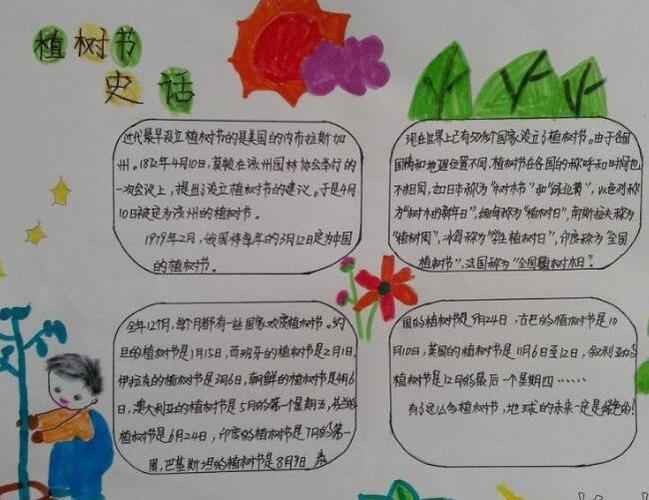 植树节
史话
近代最早设立植树节的是美国的内布拉斯加
州。1872年4月10日,莫顿在该州园林协会举行的
一次会议上,提出了设立植树节的建议。于是4月
10日被定为该州的植树节。
1979年2月,我国将每年的3月12日定为中国
的植树节。
现在世界上已有50多个国家设立了植树节。由于各国
国情和地理位置不同,植树节在各国的称呼和时间也
不相同,如日本称为“树木节”和“绿化周”,以色列称
为“树木的新年日”,缅甸称为“植树日”,南斯拉夫称为
“植树周”,冰岛称为“学生植树日”,印度称为“全国
植树节”,法国称为“全国树木日”。
全年12个月,每个月都有一些国家欢度植树节。约
旦的植树节是1月15日,西班牙的植树节是2月1日,
伊拉克的植树节是3月6日,朝鲜的植树节是4月6
日,澳大利亚的植树节是5月的第一个星期五,
植树节是6月24日,印度的植树节是7月的第一
周,巴基斯坦的植树节是8月9日 泰
国的植树节是9月24日,古巴的植树节是10
月10日,英国的植树节是11月6日至12日,叙利亚的
植树节是12月的最后一个星期四……
有了这么多植树节,地球的未来一定是绿色的!